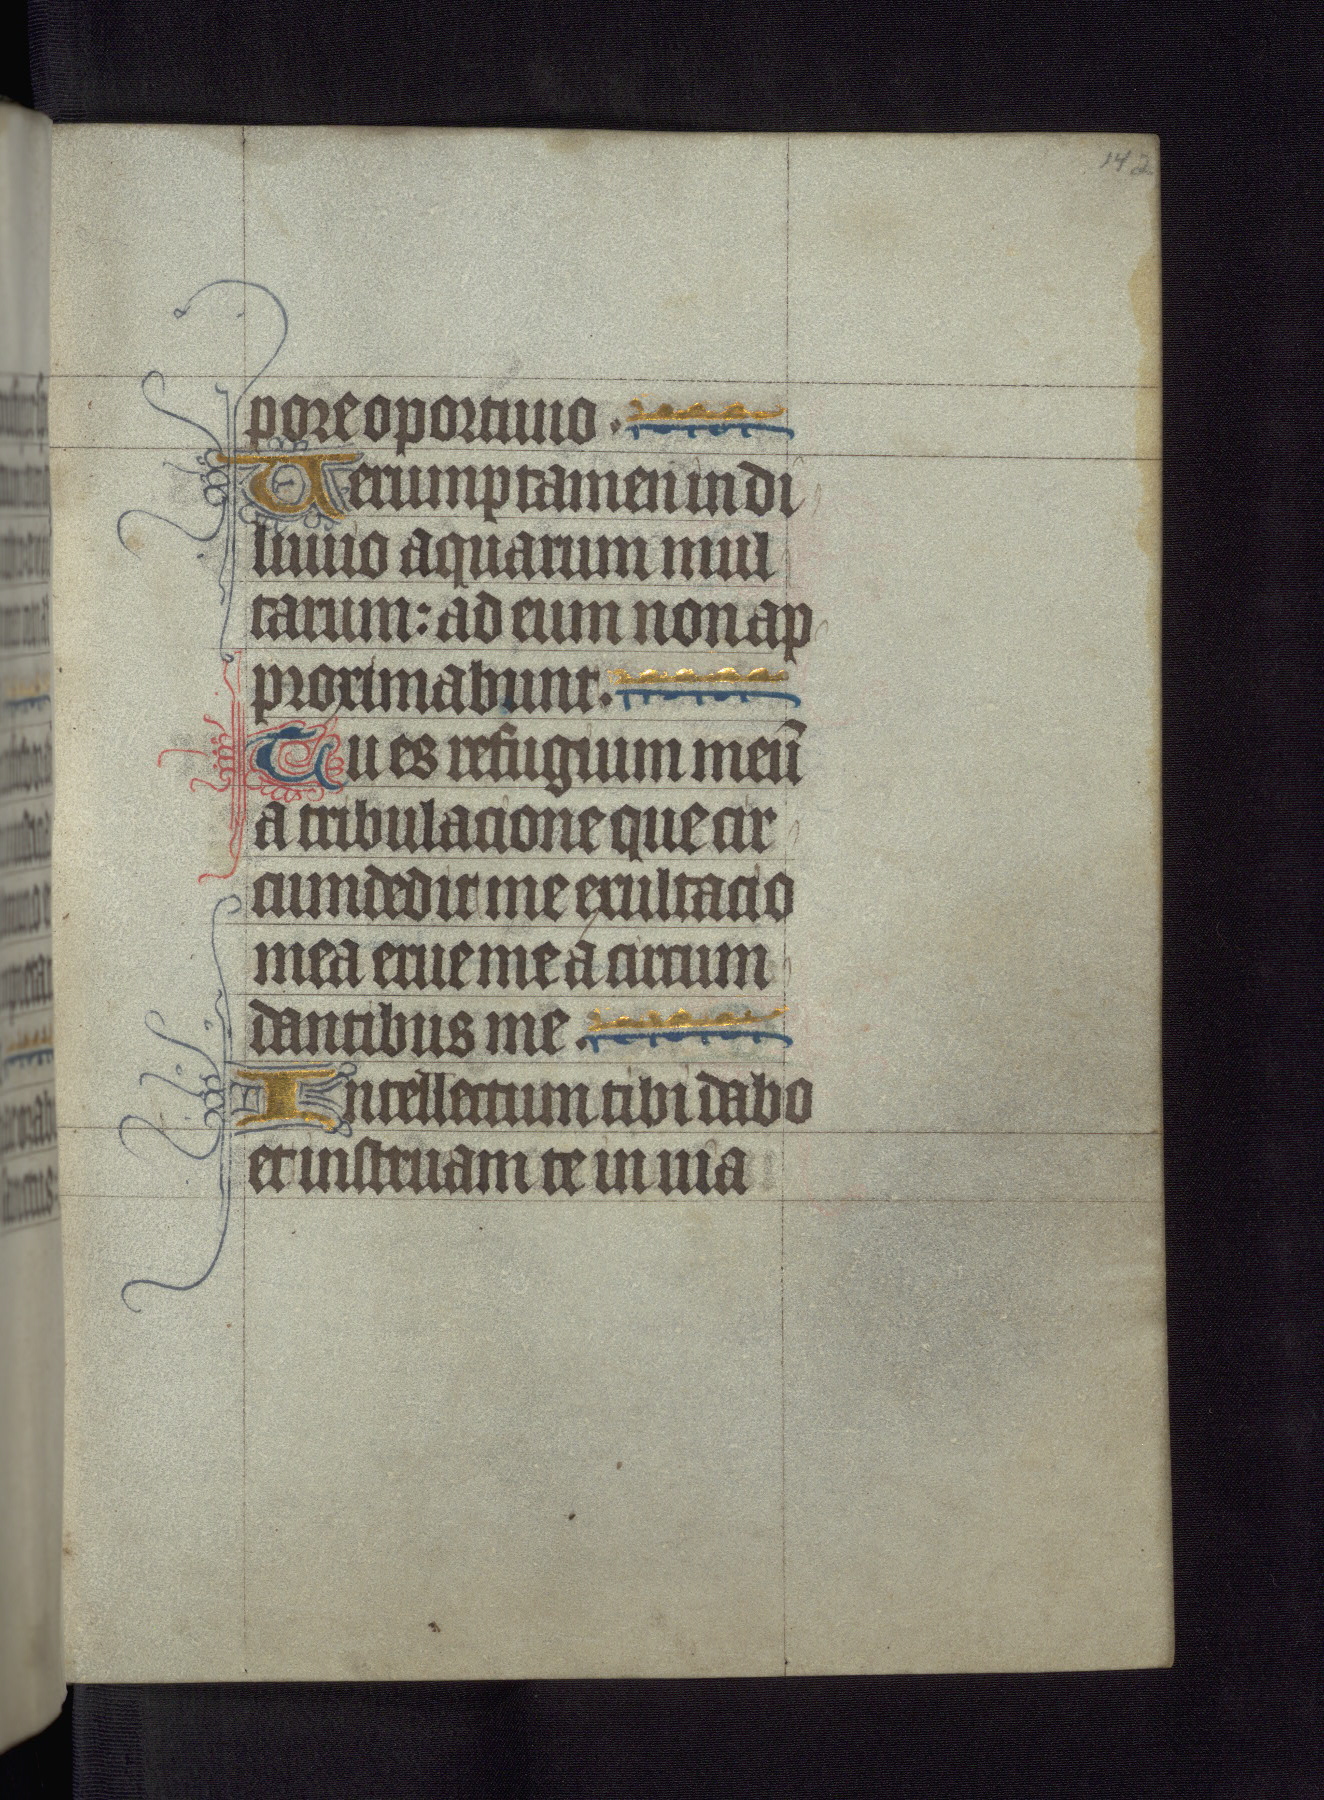 142
pore oportuno.
Uerumptamen in di
luuio aquarum mul
tarum: ad eum non ap
proximabunt.
Tu es refugium meū
a tribulacione que cir
cumdedit me exultacio
mea erue me a circum
dantibus me.
Intellectum tibi dabo
et instruam te in uia